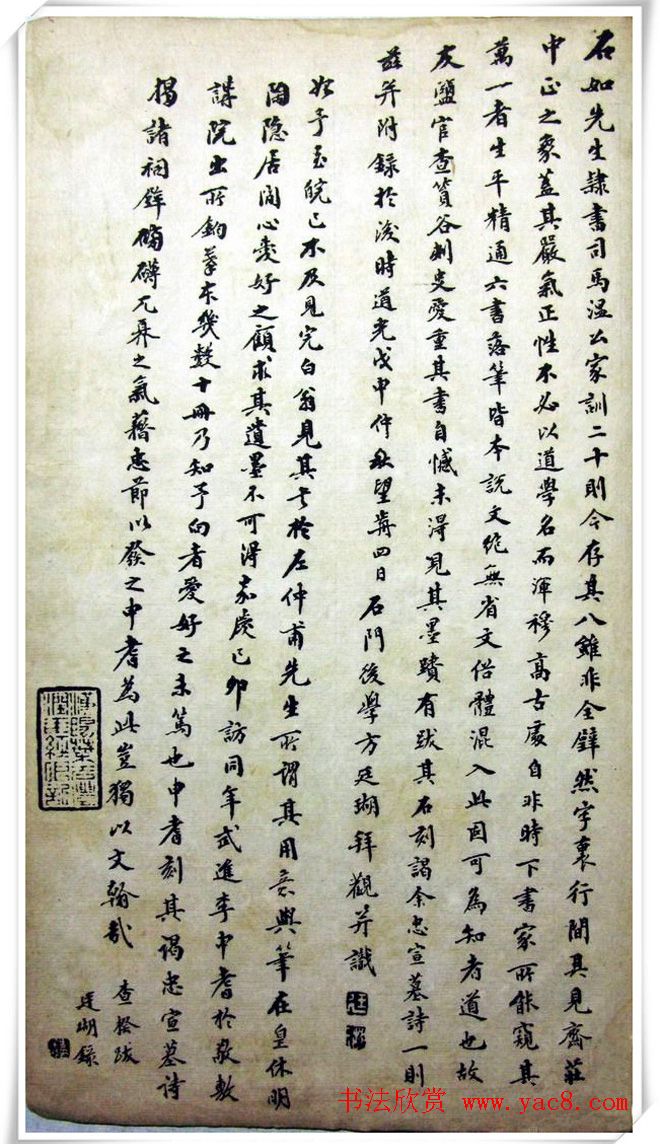 石如先生隸書司馬溫公家訓二十則今存其八雖非全璧然字裏行間具見齊莊
中正之象蓋其嚴氣正性不必以道學名而渾穆高古處自非時下書家所能窺其
萬一者生平精通六書落筆皆本說文絶無省文俗體混入此固可為知者道也故
友鹽官查篔谷刺史愛重其書自憾未得見其墨蹟有跋其石刻謁余忠宣墓詩一則
茲并附錄於後時道光戊申仲秋望前四日石門後學方廷瑚拜觀并識
始予至皖已不及見完白翁見其書於左仲甫先生所謂其用意與筆在皇休明
陶隱居間心愛好之顧求其遺墨不可得嘉慶己卯訪同年武進李申耆於敬敷
講院出所鉤摹本幾數十冊乃知予向者愛好之未篤也申耆刻其謁忠宣墓詩
揭諸祠壁磅礴兀奡之氣藉忠節以發之申耆為此豈獨以文翰哉
查 跋
廷瑚錄
书法欣赏 www.yac8.com